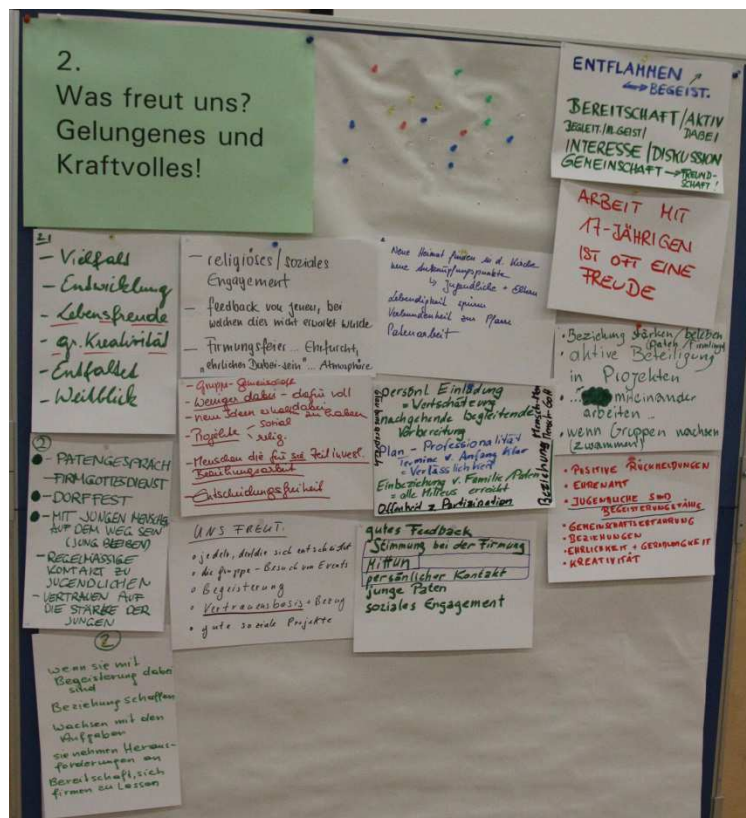 2.
Was freut uns?
Gelungenes und
Kraftvolles!
ENTFLAMMEN
BEGEIST.
BEREITSCHAFT/AKTIV
BEGLEIT./M.GEIST/ DABEI
INTERESSE/DISKUSSION
GEMEINSCHAFT → FREUND-
SCHAFT!
ARBEIT MIT
17-JÄHRIGEN
IST OFT EINE
FREUDE
2)
- Vielfalt
- Entwicklung
- Lebensfreude
- gr. Kreativität
- Entfaltet
- Weitblick
- religiöses/soziales
Engagement
- feedback von jenen, bei
welchen dies nicht erwartet wurde
- Firmungsfeier... Ehrfurcht,
"ehrliches Dabei-sein"... Atmosphäre
Neue Heimat finden in d. Kirche
neue Anknüpfungspunkte
↳ Jugendliche + Eltern
Lebendigkeit spüren
Verbundenheit zur Pfarre
Patenarbeit
• Beziehung stärken/beleben
(Paten/Firmling)
• aktive Beteiligung
in Projekten
• ... miteinander
arbeiten...
• wenn Gruppen wachsen
(zusammen)
- Gruppe - Gemeinschaft
- Weniger dabei - dafür voll
- neue Ideen
- Projekte - sozial
- relig.
- Menschen die für sie Zeit invest.
Beziehungsarbeit
- Entscheidungsfreiheit
persönl. Einladung
= Wertschätzung
nachgehende begleitende
Vorbereitung
Plan - Professionalität
Termine v. Anfang klar
- Verlässlichkeit
Einbeziehung v. Familie/Paten
= alle Milieus erreicht
Offenheit z Partizipation
Beziehung Mensch-Men
Mensch-Gott
• POSITIVE RÜCKMELDUNGEN
• EHRENAMT
• JUGENDLICHE SIND
BEGEISTERUNGSFÄHIG
• GEMEINSCHAFTSERFAHRUNG
• BEZIEHUNGEN
• EHRLICKEIT + GERADLINIGKEIT
• KREATIVITÄT
2
- PATENGESPRÄCH
- FIRMGOTTESDIENST
- DORFFEST
- MIT JUNGEN MENSCHEN
AUF DEM WEG SEIN
(JUNG BLEIBEN)
- REGELMÄSSIGE
KONTAKT ZU
JUGENDLICHEN
- VERTRAUEN AUF
DIE STÄRKE DER
JUNGEN
UNS FREUT:
• jede/r, der/die sich entscheidet
• die Gruppe - Besuch von Events
• Begeisterung
• Vertrauensbasis + Bezug
• gute soziale Projekte
gutes Feedback
Stimmung bei der Firmung
Mittun
persönlicher Kontakt
junge Paten
soziales Engagement
2
wenn sie mit
Begeisterung dabei
sind
Beziehung schaffen
wachsen mit den
Aufgaben
sie nehmen Heraus-
forderungen an
Bereitschaft, sich
firmen zu lassen